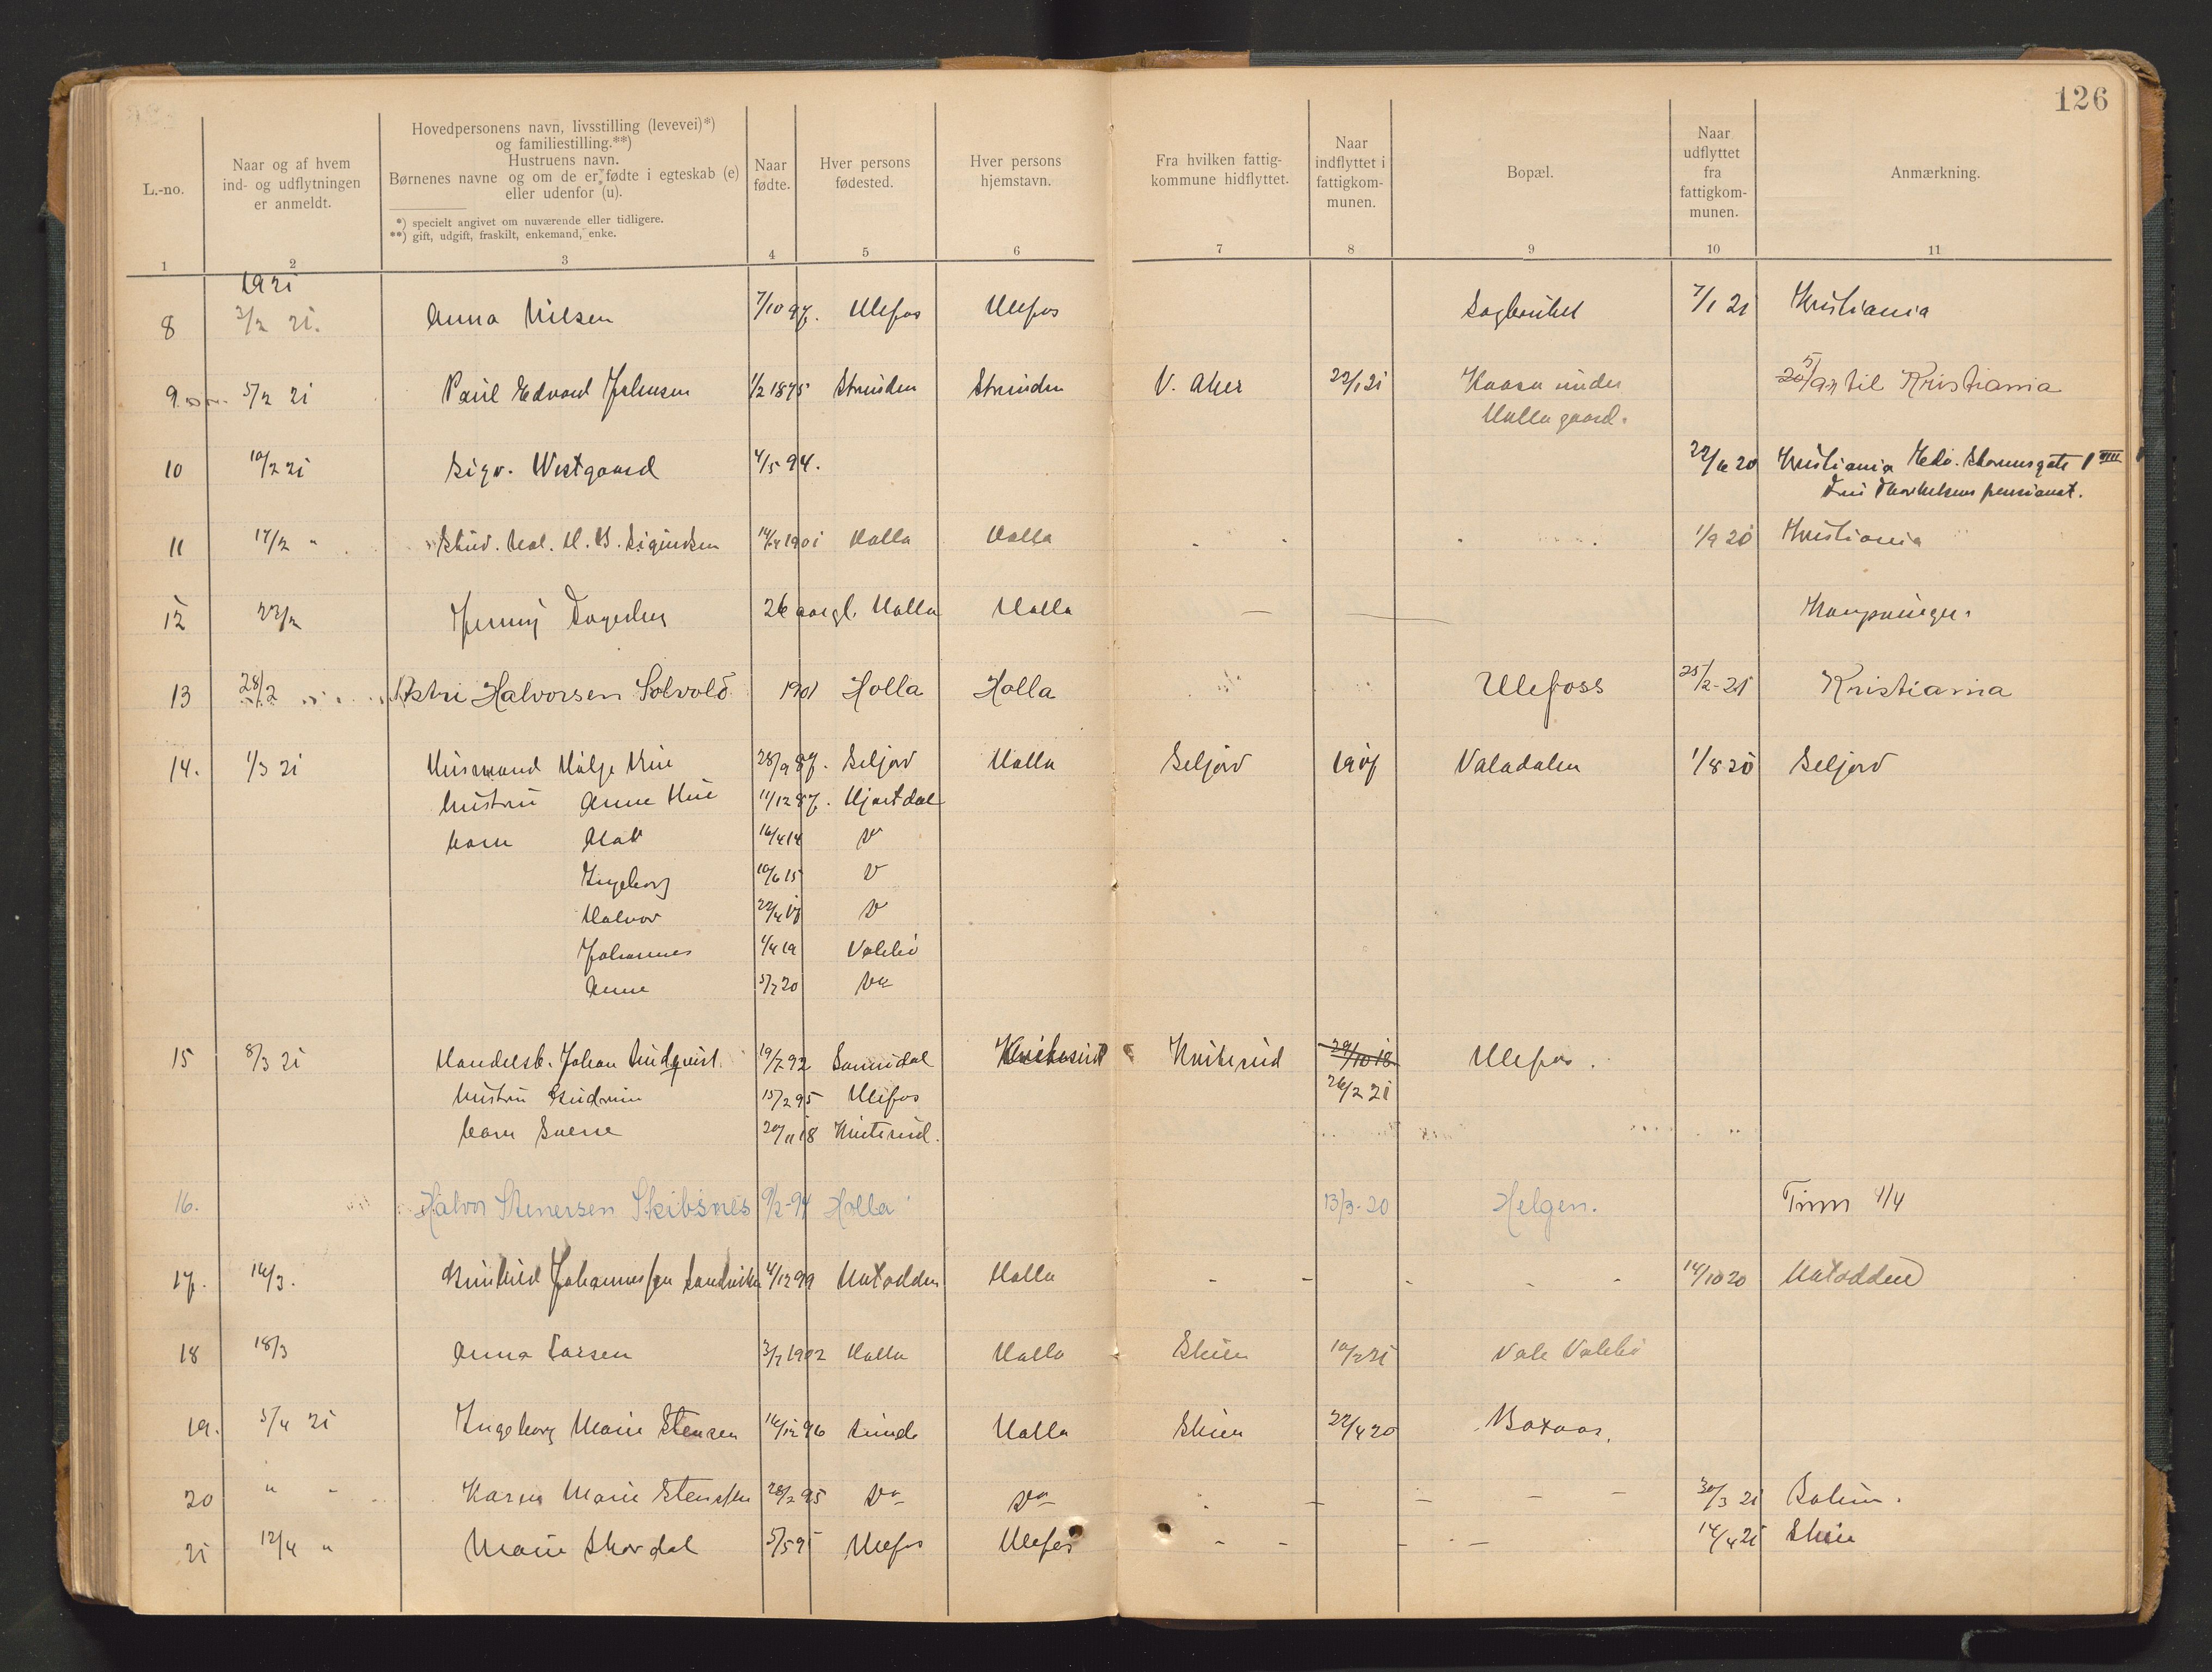 126
L.-no.
Naar og af hvem
ind- og udflytningen
er anmeldt.
Hovedpersonens navn, livsstilling (levevei)*)
og familiestilling.**)
Hustruens navn.
Børnenes navne og om de er fødte i egteskab (e)
eller udenfor (u).
*) specielt angivet om nuværende eller tidligere.
**) gift, udgift, fraskilt, enkemand, enke.
Naar
fødte.
Hver persons
fødested.
Hver persons
hjemstavn.
Fra hvilken fattig-
kommune hidflyttet.
Naar
indflyttet i
fattigkom-
munen.
Bopæl.
Naar
udflyttet
fra
fattigkom-
munen.
Anmærkning.
1 2 3 4 5 6 7 8 9 10 11
1921
8 3/2 21. Anna Nilsen 7/10 97. Ulefos Ulefos 7/1 21 Kristiania
9 5/2 21 Paul Edvard Johnsen 1/2 1875 Strinden Strinden V. Aker 22/1 21 Kaasa under 5/9 21 til Kristiania
Holla gaard.
10 10/2 21 Sigv. Westgaard 4/5 94. 22/6 20 Kristiania Edv. Stormsgate 1 VIII
pensionat.
11 17/2 " Stud. H. B. Sigurdsen 14/4 1901 Holla Holla 1/9 20 Kristiania
12 23/2 Jenny 26 aar gl. Holla Holla Kongsvinger.
13 28/2 Astri Halvorsen Solvold 1901 Holla Holla Ulefoss 25/2-21 Kristiania
14. 1/3 21 Husmand Helje Lie 28/9 87. Seljord Holla Seljord 1917 Valadalen 1/8 20 Seljord
hustru Anne Lie 11/12 87. Hjartdal
barn Aslak 16/4 14 "
Ingeborg 10/6 15 "
Halvor 22/4 17 "
Johannes 1/4 19 Valebø
Anne 5/7 20 Do
15 8/3 21 Handelsb. Johan Lindqvist. 19/7 92 Sannidal Kviteseid Kviteseid 29/10 18 Ulefos.
hustru Gudrun 15/2 95 Ulefos 26/2 21
barn Sverre 20/11 18 Kviteseid.
16. Halvor Stenersen Skibsnes 9/2-94 Holla 13/3-20 Helgen. Tinn 4/4
17. 16/3. Gunhild Johannessen Sandviken 4/12 99 Notodden Holla 14/10 20 Notodden
18 18/3 Anna Larsen 3/7 1902 Holla Holla Skien 10/2 21 Vale Valebø
19. 5/4 21 Ingeborg Marie Stensen 14/12 96 Lunde Holla Skien 22/4 20
20 " " Karen Marie Stensen 28/2 95 Do Do 30/3 21
21 12/4 " Marie Skordal 5/5 95 Ulefos Ulefos 14/4 21 Skien